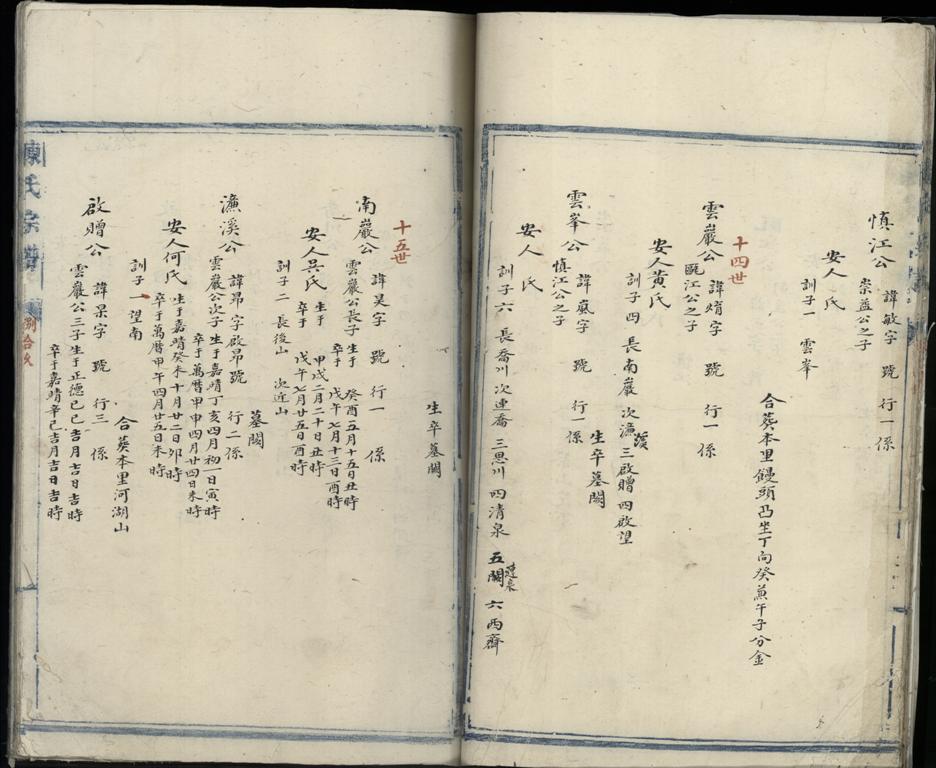 慎江公
諱敏字 號 行一 係
崇益公之子
安人 氏
訓子一 雲峯
合葬本里饅頭凸坐丁向癸兼午子分金
十四世
雲巖公
諱焴字 號 行一 係
甌江公之子
安人黄氏
訓子四 長南巖 次濂溪 三啟贈 四啟望
生卒墓闕
雲峯公
諱 字 號 行一 係
慎江公之子
安人 氏
訓子六 長喬川 次連喬 三思川 四清泉 五闕 六西齋
生卒墓闕
十五世
南巖公
諱昊字 號 行一 係
雲巖公長子 生于 癸酉五月十五日丑時
卒于 戊午七月十三日酉時
安人吳氏
生于 甲戌二月二十日丑時
卒于 戊午七月廿五日酉時
訓子二 長後山 次近山
墓闕
濂溪公
諱昂字啟昂號 行二 係
雲巖公次子 生于嘉靖丁亥四月初一日寅時
卒于萬曆甲申四月廿四日未時
安人何氏
生于嘉靖癸未十月廿二日卯時
卒于萬曆甲午四月廿五日未時
訓子一 望南
合葬本里河湖山
啟贈公
諱杲字 號 行三 係
雲巖公三子 生于正德己巳吉月吉日吉時
卒于嘉靖辛巳吉月吉日吉時
陳氏宗譜